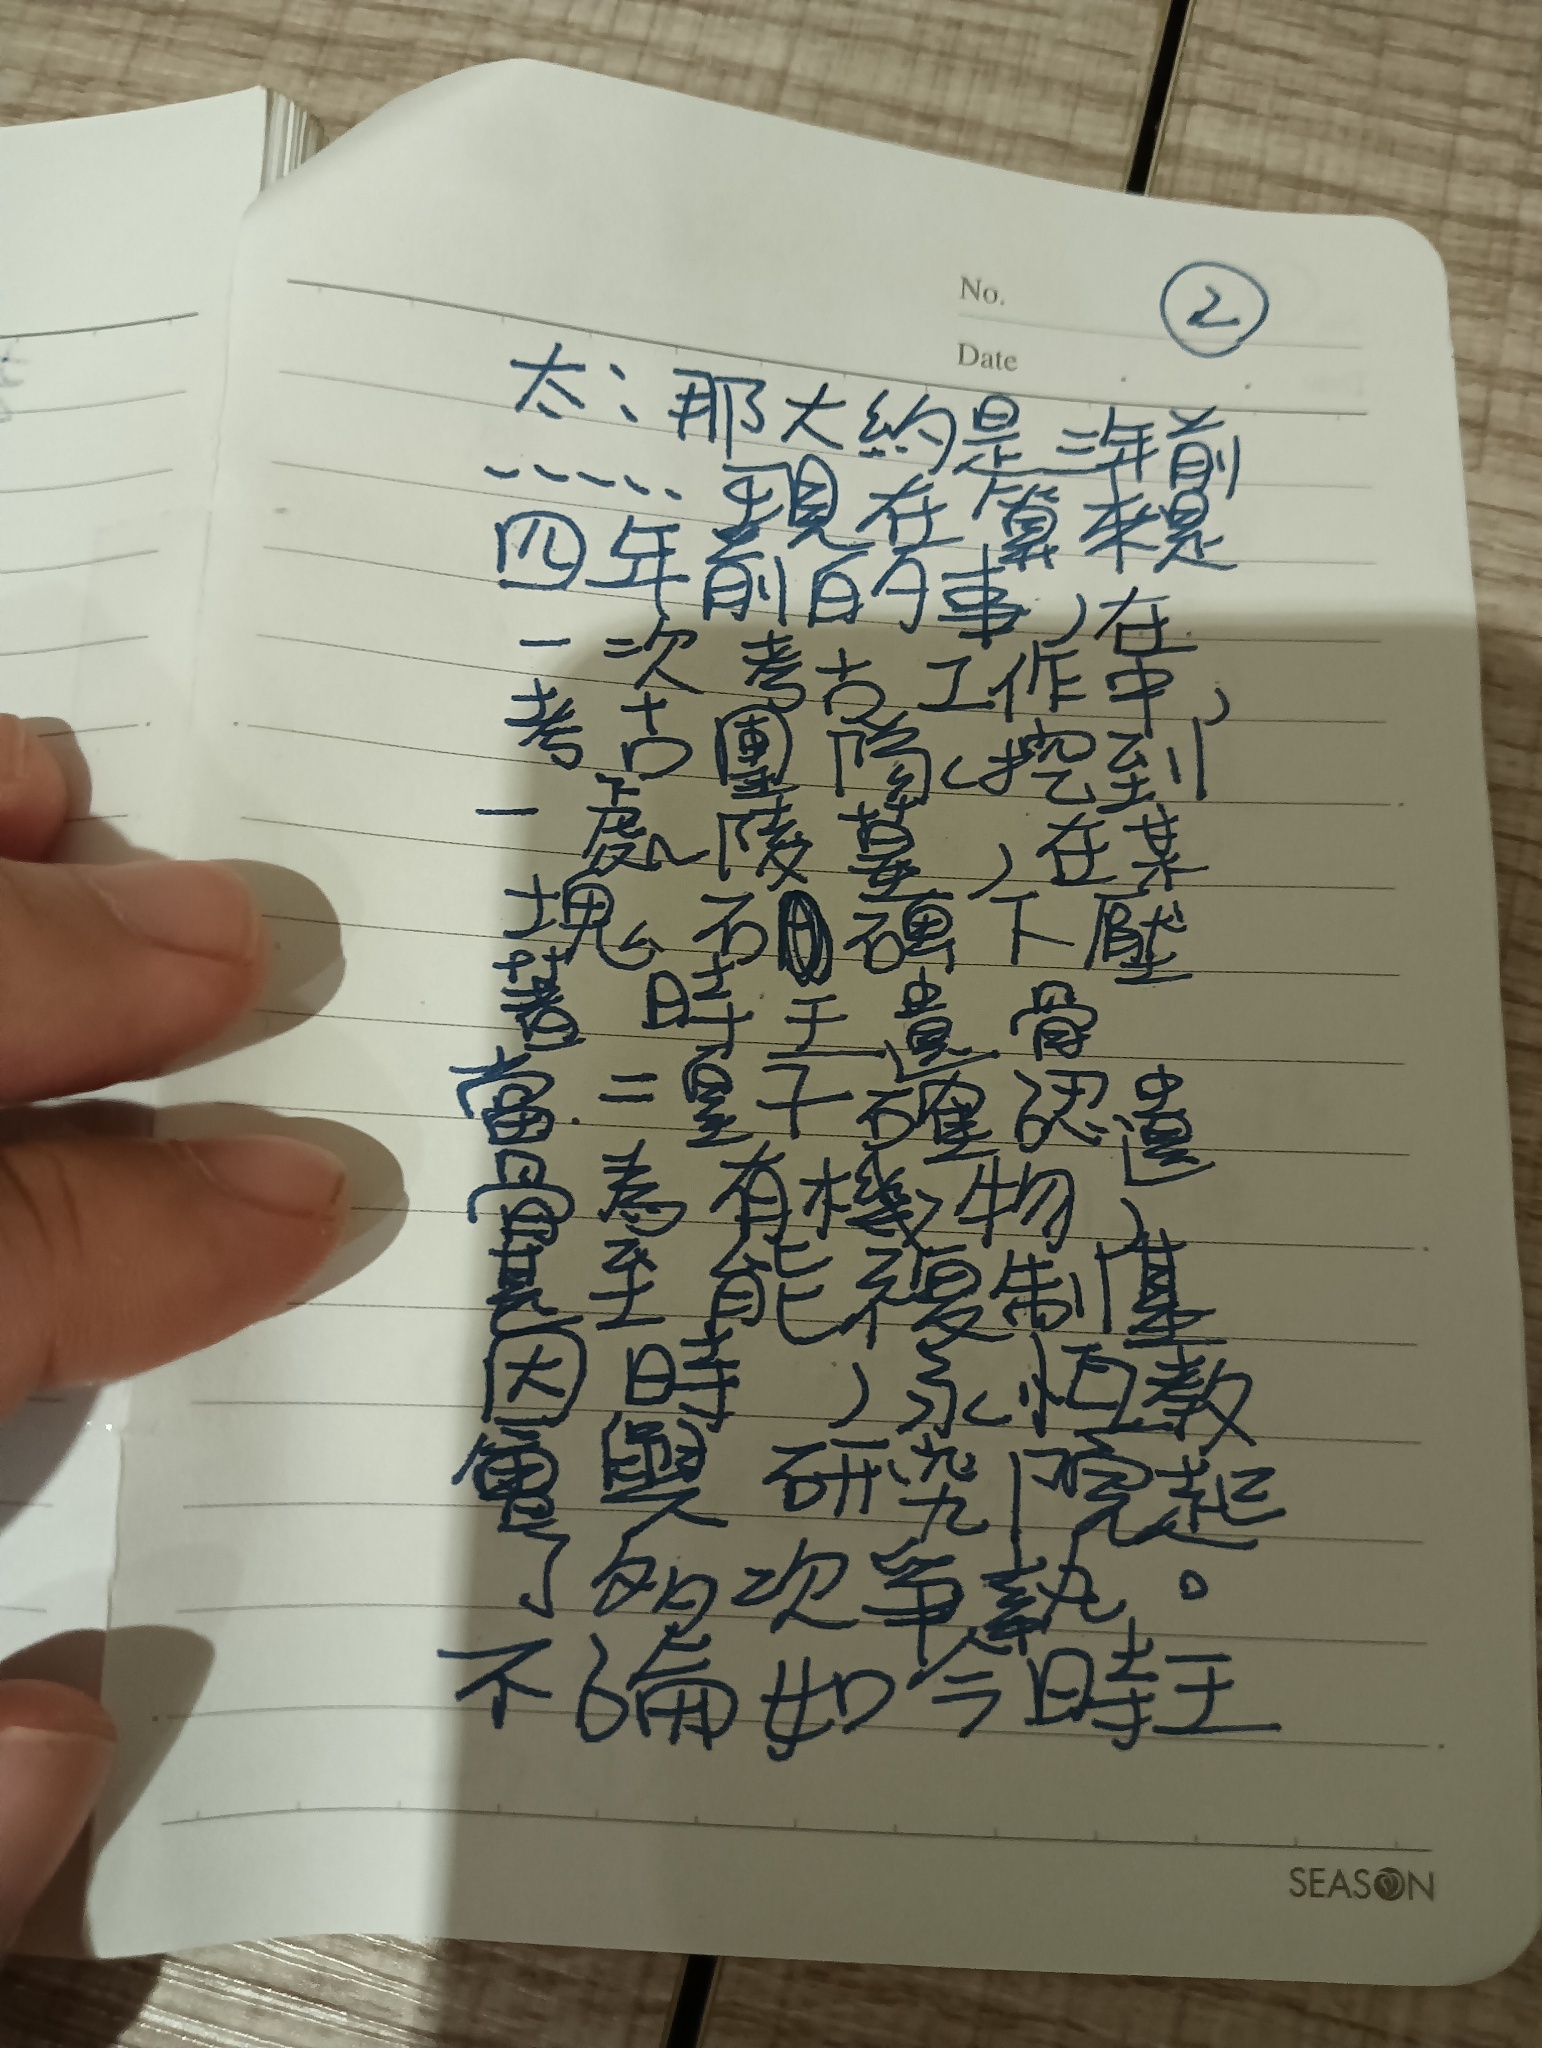 No. ②
Date
太：那大約是三年前
……現在算來是
四年前的事，在
一次考古工作中，
考古團隊挖到
一處陵墓，在某
塊石磚下壓
著時王遺骨
當二皇子確認遺
骨為有機物，
甚至能複制基
因時，永恆教
會與研究院起
了多次爭執。
不論如今時王
SEASON